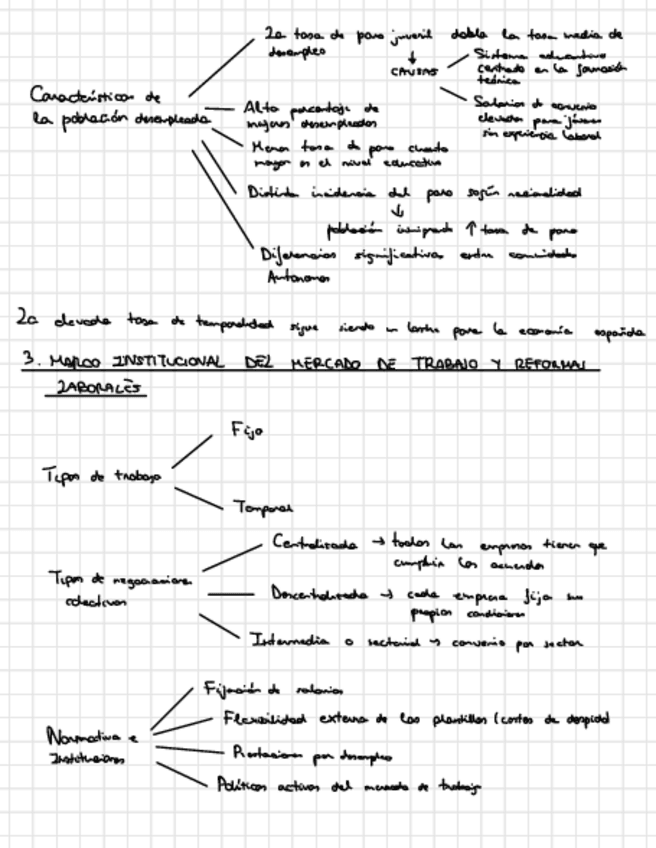 La tasa de paro juvenil dobla la tasa media de
desempleo
↓
CAUSAS
Sistema educativo
centrado en la formación
teórica
Salarios de convenio
elevados para jóvenes
sin experiencia laboral
Características de
la población desempleada
Alto porcentaje de
mujeres desempleadas
Menor tasa de paro cuanto
mayor es el nivel educativo
Distinta incidencia del paro según nacionalidad
↓
población inmigrada ↑ tasa de paro
Diferencias significativas entre comunidades
Autonomas
La elevada tasa de temporalidad sigue siendo un lastre para la economía española
3. MARCO INSTITUCIONAL DEL MERCADO DE TRABAJO Y REFORMAS
LABORALES
Tipos de trabajo
Fijo
Temporal
Tipos de negociaciones
colectivas
Centralizada → todas las empresas tienen que
cumplir los acuerdos
Descentralizada → cada empresa fija sus
propias condiciones
Intermedia o sectorial → convenio por sector
Normativa e
Instituciones
Fijación de salarios
Flexibilidad externa de las plantillas (costes de despido)
Prestaciones por desempleo
Políticas activas del mercado de trabajo